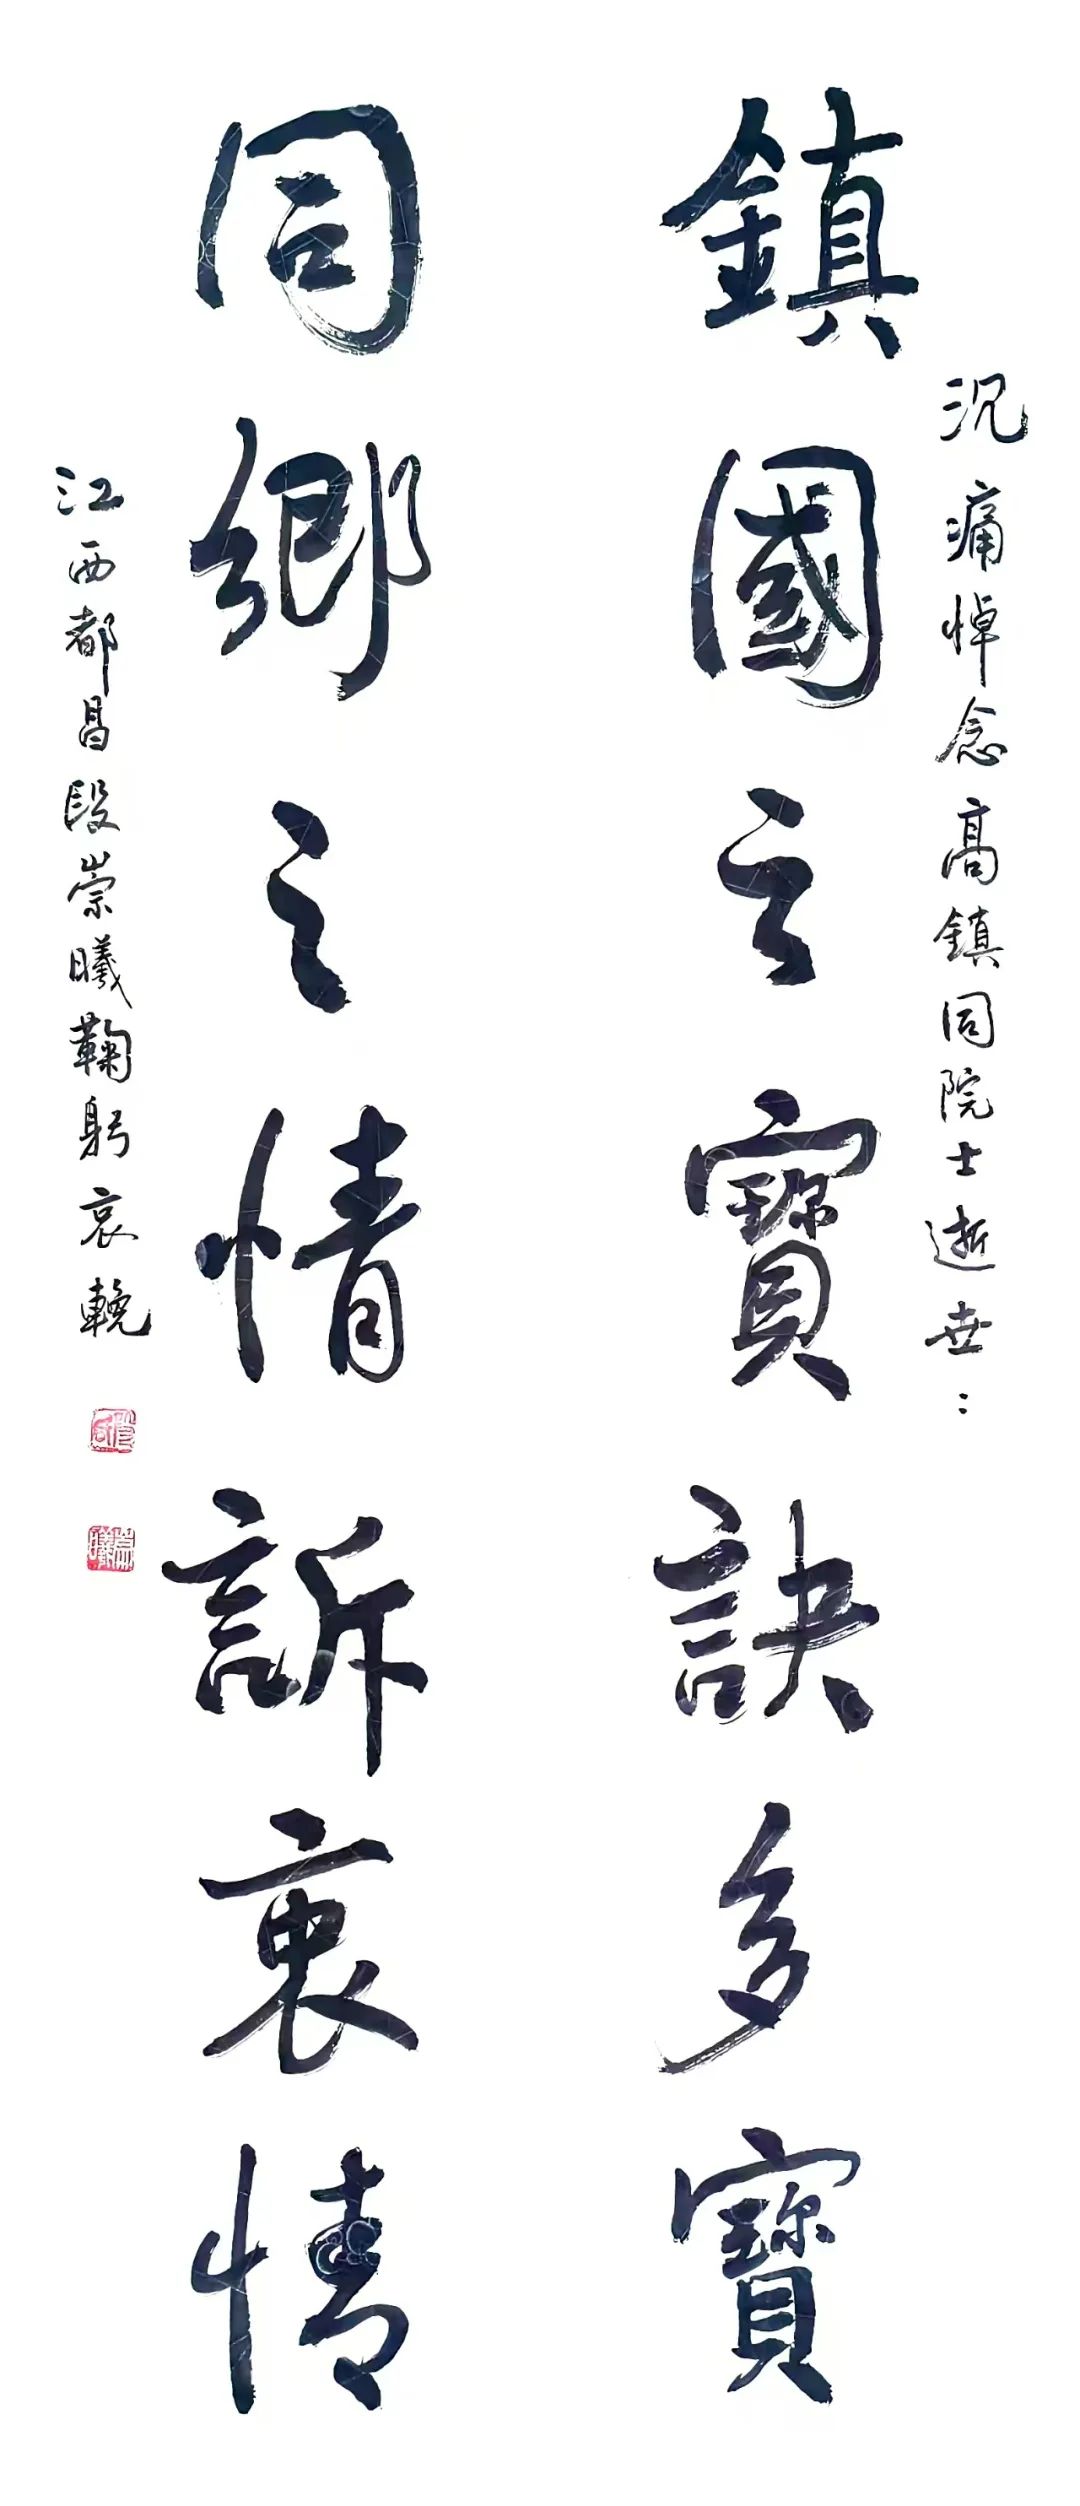 沉痛悼念高鎮同院士逝世：
鎮國之寶訣多寶
同鄉之情訴衷情
江西都昌段崇曦鞠躬哀輓
崇曦